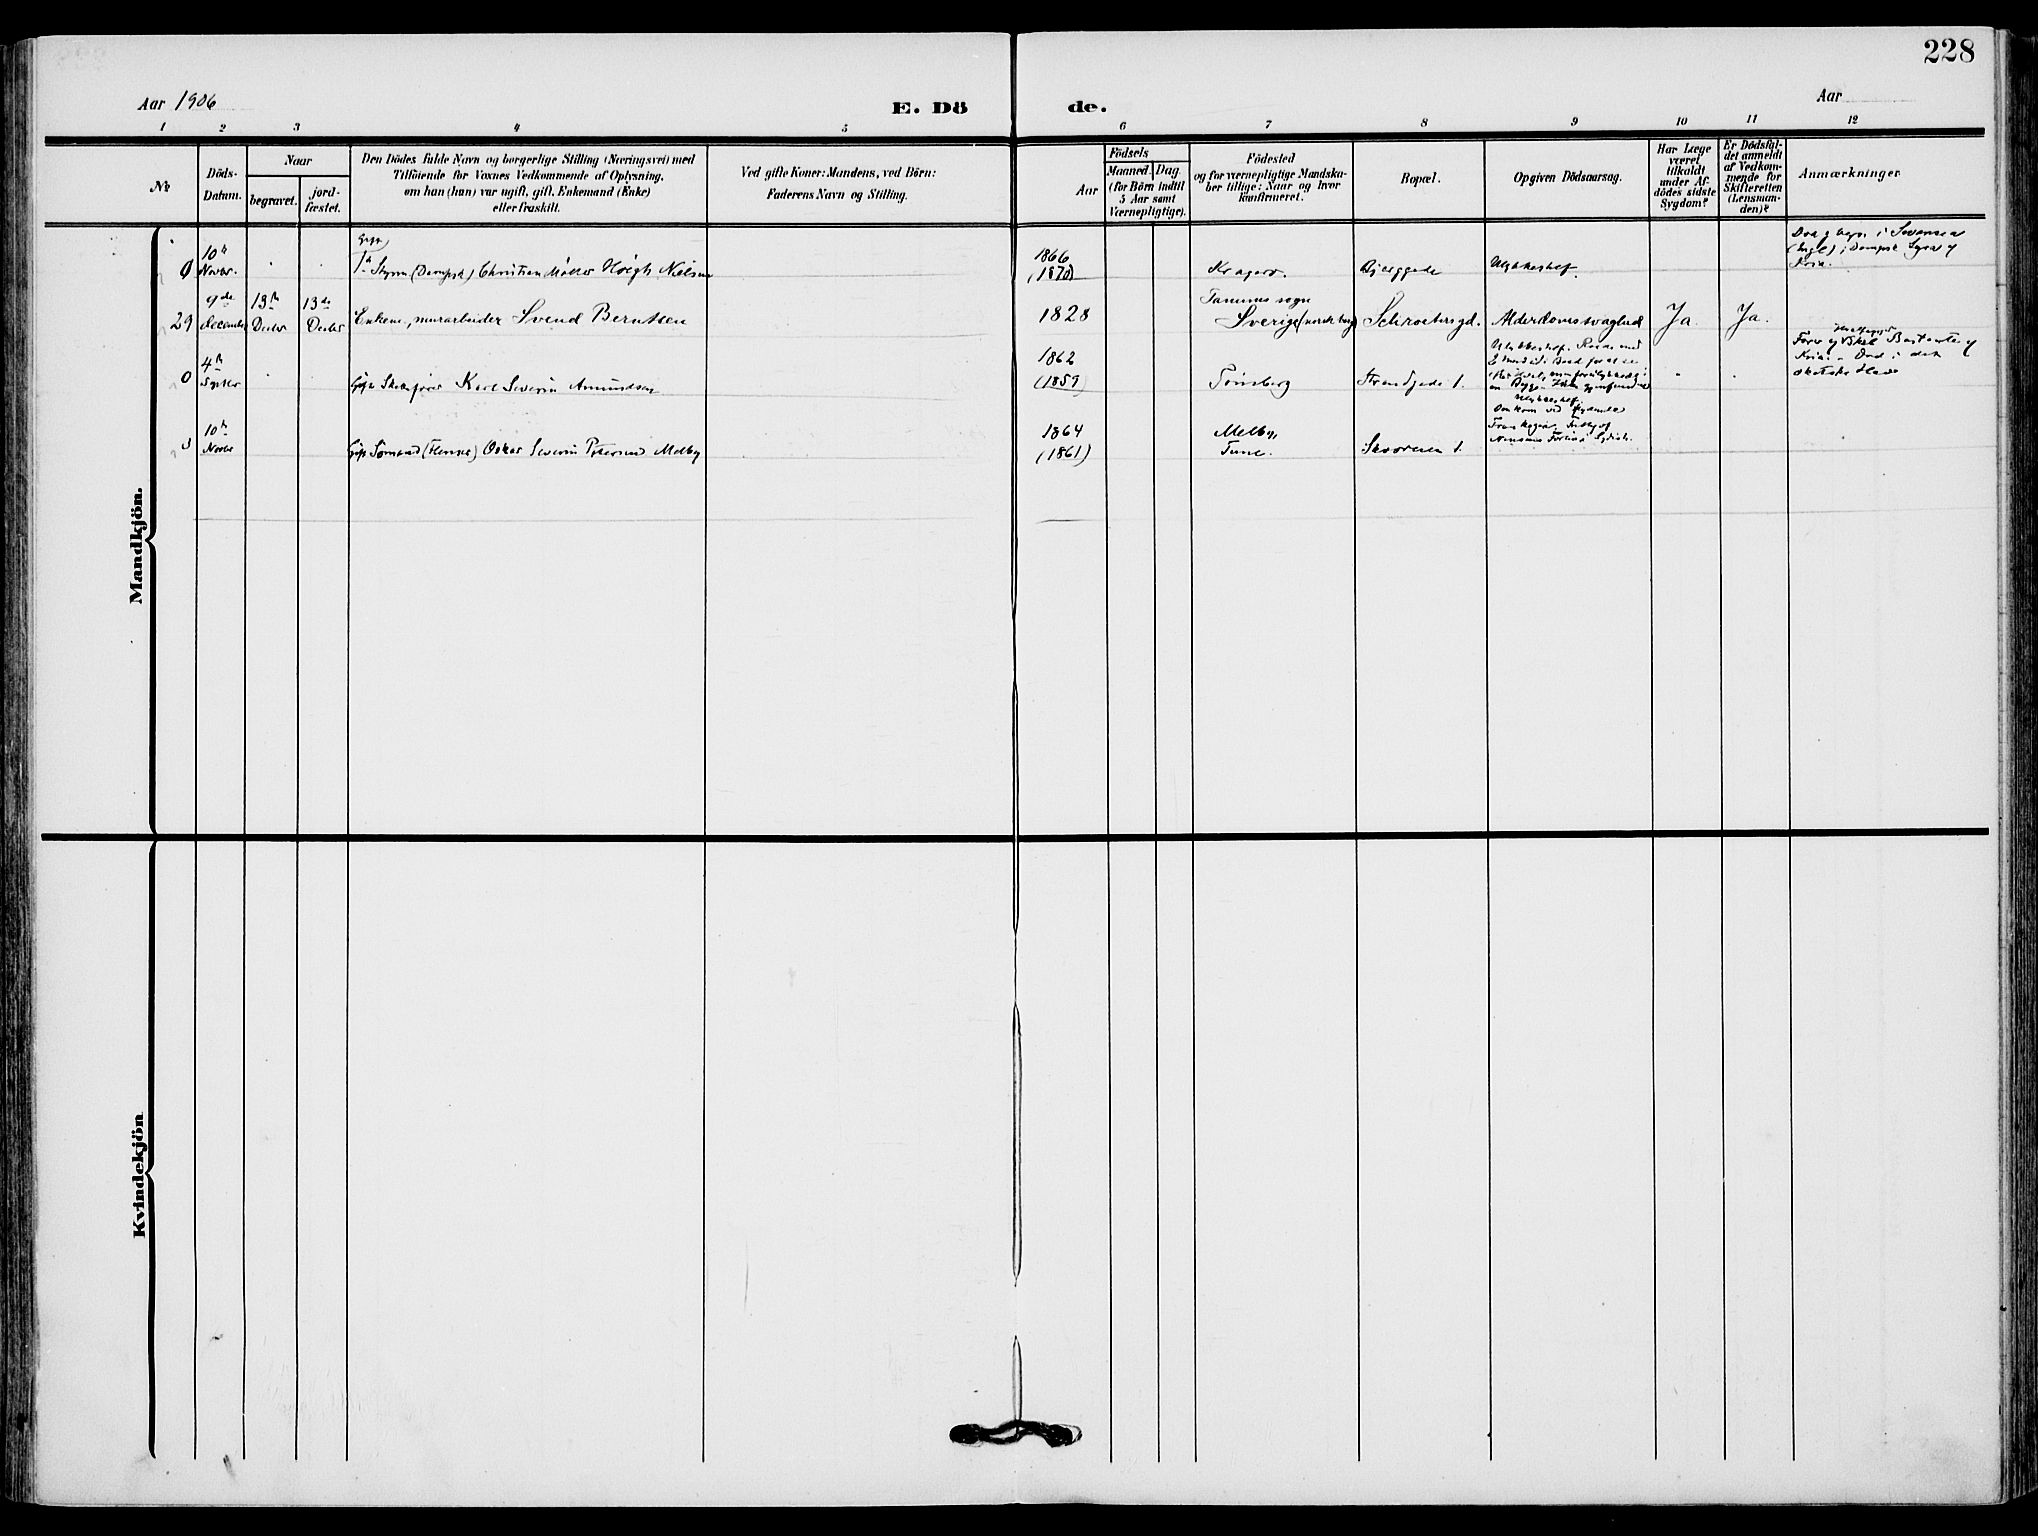 228
Aar 1906
E. Dö
de.
Aar
1 2 3 4 5 6 7 8 9 10 11 12
No
Döds-
Datum.
Naar
begravet.
jord-
fæstet.
Den Dödes fulde Navn og borgerlige Stilling (Næringsvei) med
Tilföiende for Voxnes Vedkommende af Oplysning,
om han (hun) var ugift, gift, Enkemand (Enke)
eller fraskilt.
Ved gifte Koner: Mandens, ved Börn:
Faderens Navn og Stilling.
Aar
Födsels
Maaned. Dag
(for Börn indtil
5 Aar samt
Værnepligtige).
Födested
og for værnepligtige Mandska-
ber tillige: Naar og hvor
konfirmeret.
Bopæl.
Opgiven Dödsaarsag.
Har Læge
været
tilkaldt
under Af-
dödes sidste
Sygdom?
Er Dödsfal-
det anmeldt
af Vedkom-
mende for
Skifteretten
(Lensman-
den)?
Anmærkninger
Mandkjön.
0
10
Novbr.
Gift
Styrm (Dampsk) Christian Möller Höegh Nielsen
1866
(1870)
Kragerö.
Bjerggade
Ulykkestilf.
i Swansea
(Engl)
Kria.
29
9de
december
13
Decbr
13de
Decbr
Enkem, murarbeider Svend Berntsen
1828
Tanums sogn
Sverige
Schroetersgd.
Alderdomssvaghed
Ja.
Ja.
0
4
Septbr
Gift Karl Severin Amundsen
1862
(1859)
Tönsberg
Strandgade 1.
Ulykkestilf.
Kria. Död i det
0
10
Novbr
Gift Sömand Oskar Severin Petersen Melby
1864
(1861)
Melby,
Tune.
1.
Ulykkestilf.
Omkom ved
Kvindekjön